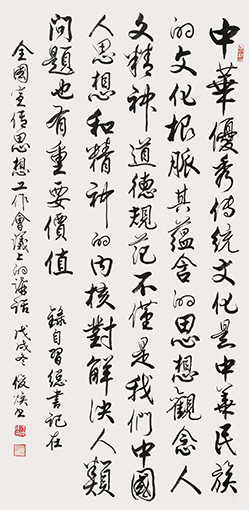 中華優秀傳統文化是中華民族
的文化根脈其蘊含的思想觀念人
文精神道德規范不僅是我們中國
人思想和精神的内核對解決人類
問題也有重要價值 錄自習總書記在
全國宣传思想工作會議上的講話 戊戌冬